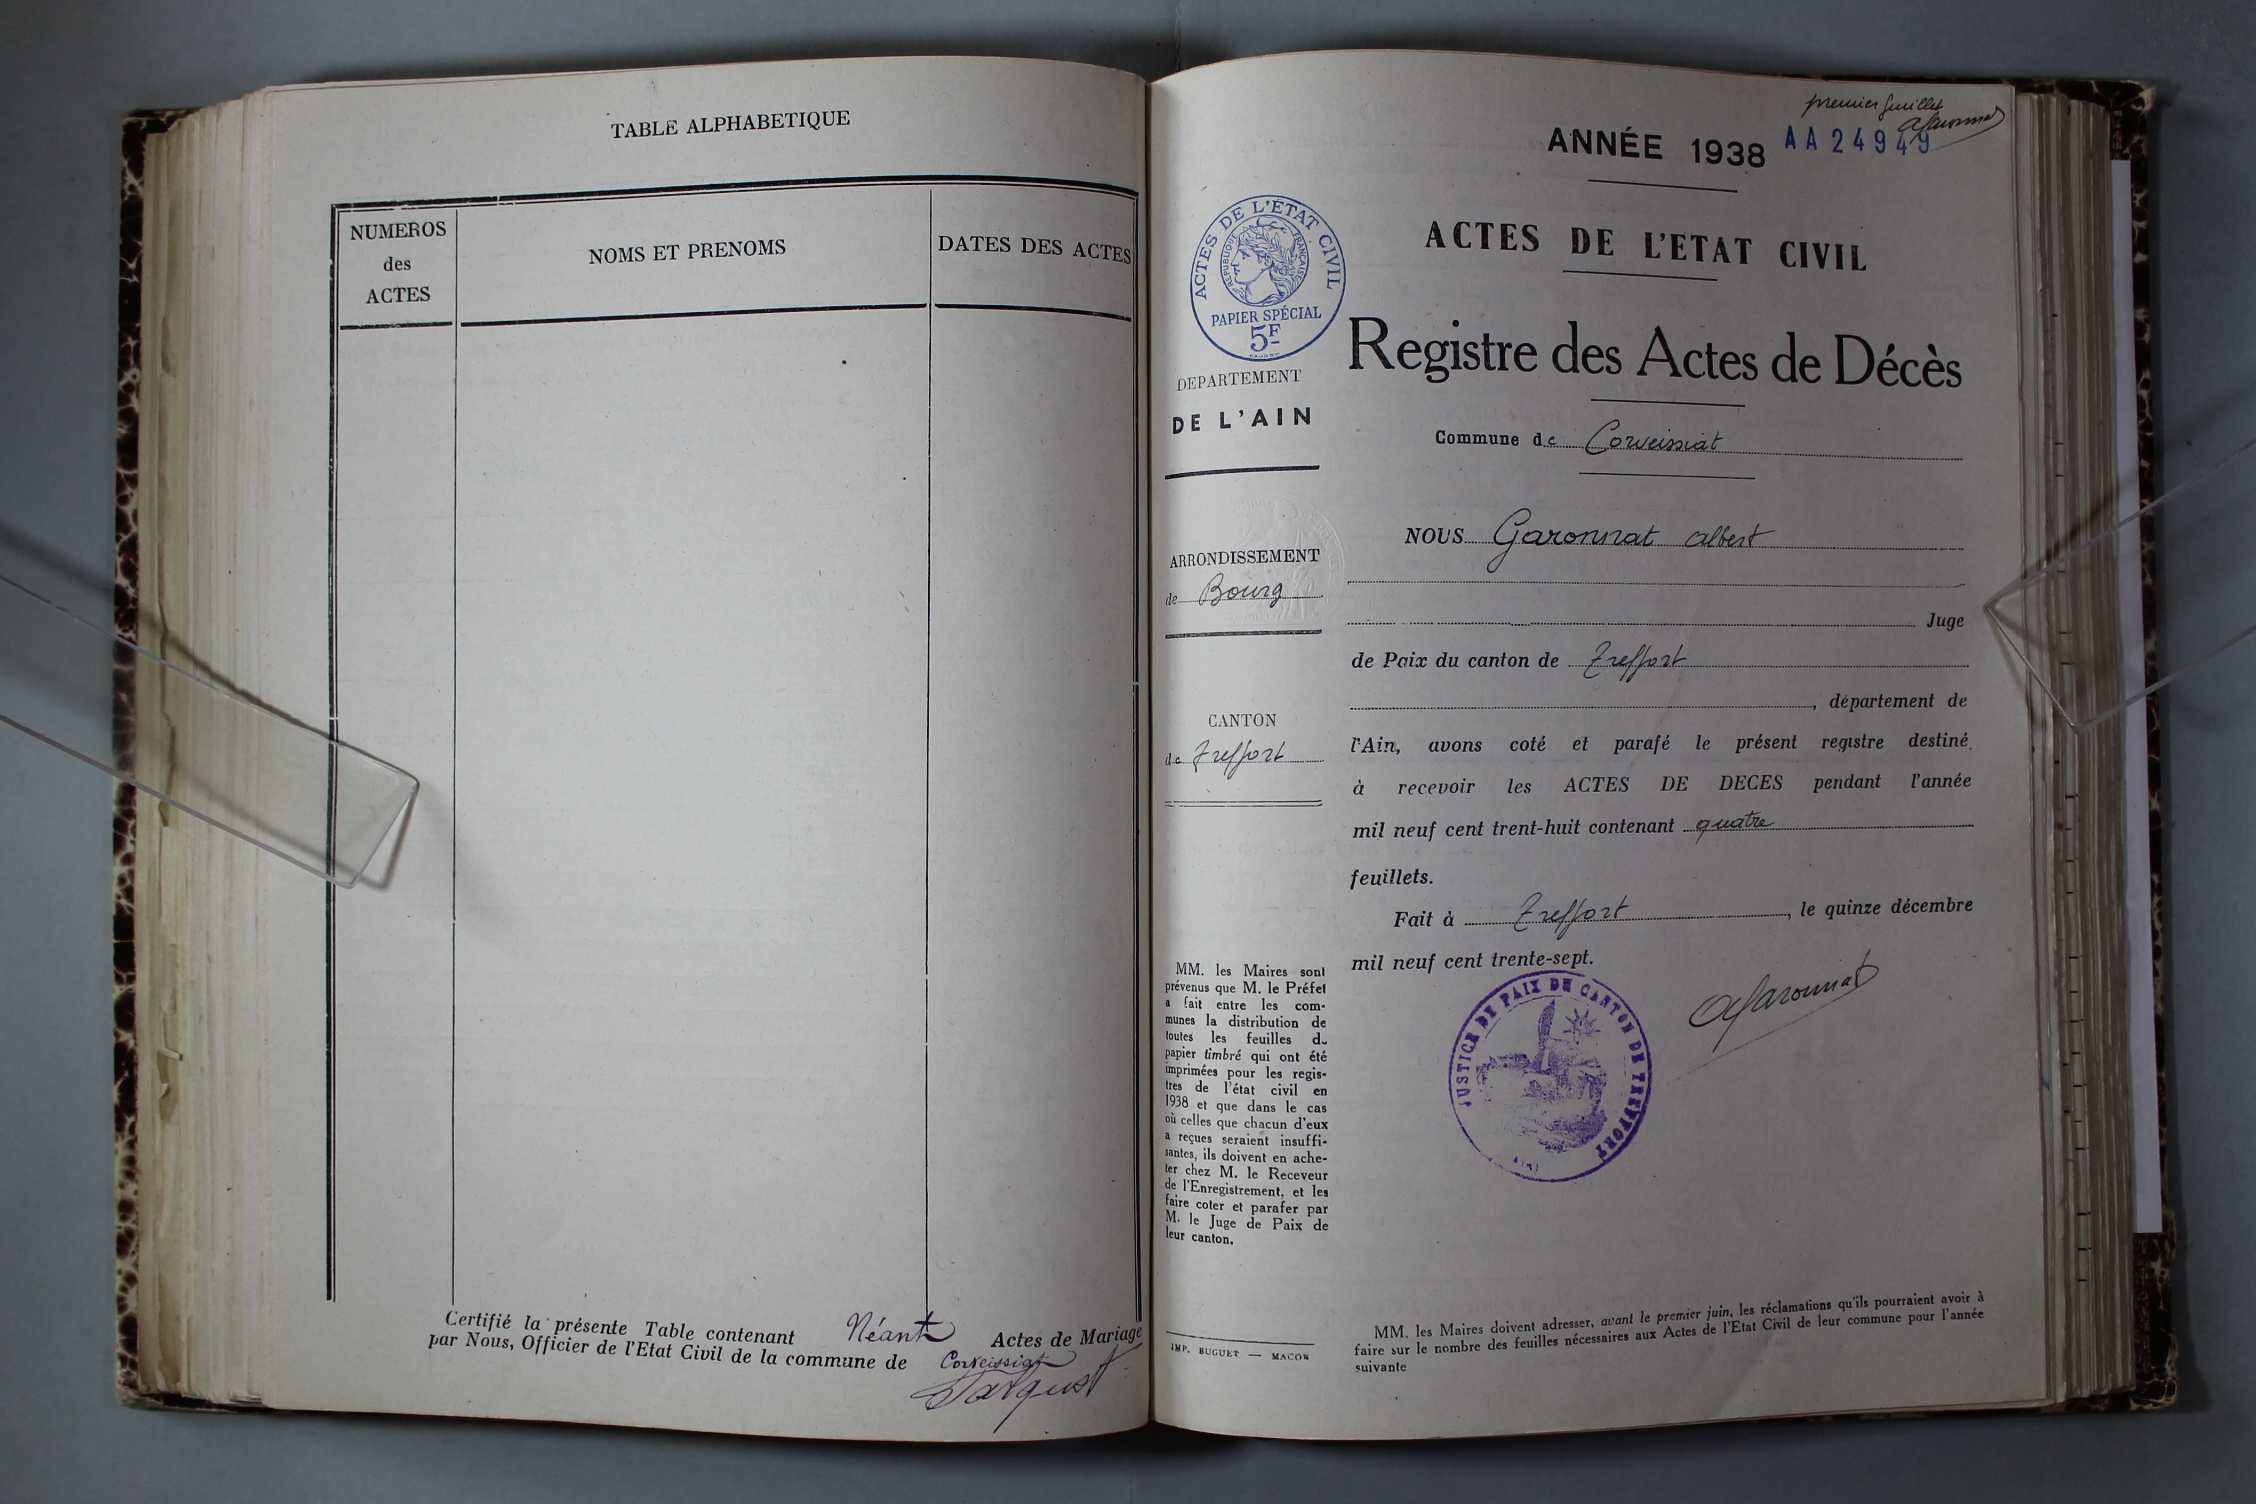 TABLE ALPHABETIQUE
NUMEROS
des
ACTES
NOMS ET PRENOMS
DATES DES ACTES
Certifié la présente Table contenant Néant Actes de Mariage
par Nous, Officier de l'Etat Civil de la commune de Corveissiat
premier feuillet
AGaronnat
ANNÉE 1938 AA 24949
ACTES DE L'ÉTAT CIVIL
RÉPUBLIQUE FRANÇAISE
PAPIER SPÉCIAL
5F
DEPARTEMENT
DE L'AIN
ARRONDISSEMENT
de Bourg
CANTON
de Treffort
MM. les Maires sont
prévenus que M. le Préfet
a fait entre les com-
munes la distribution de
toutes les feuilles du
papier timbré qui ont été
imprimées pour les regis-
tres de l'état civil en
1938 et que dans le cas
où celles que chacun d'eux
a reçues seraient insuffi-
santes, ils doivent en ache-
ter chez M. le Receveur
de l'Enregistrement, et les
faire coter et parafer par
M. le Juge de Paix de
leur canton.
IMP. BUGUET — MACON
ACTES DE L'ETAT CIVIL
Registre des Actes de Décès
Commune de Corveissiat
NOUS Garonnat Albert
Juge
de Paix du canton de Treffort
, département de
l'Ain, avons coté et parafé le présent registre destiné
à recevoir les ACTES DE DECES pendant l'année
mil neuf cent trent-huit contenant quatre
feuillets.
Fait à Treffort, le quinze décembre
mil neuf cent trente-sept.
AGaronnat
JUSTICE DE PAIX DU CANTON DE TREFFORT
(AIN)
MM. les Maires doivent adresser, avant le premier juin, les réclamations qu'ils pourraient avoir à
faire sur le nombre des feuilles nécessaires aux Actes de l'Etat Civil de leur commune pour l'année
suivante